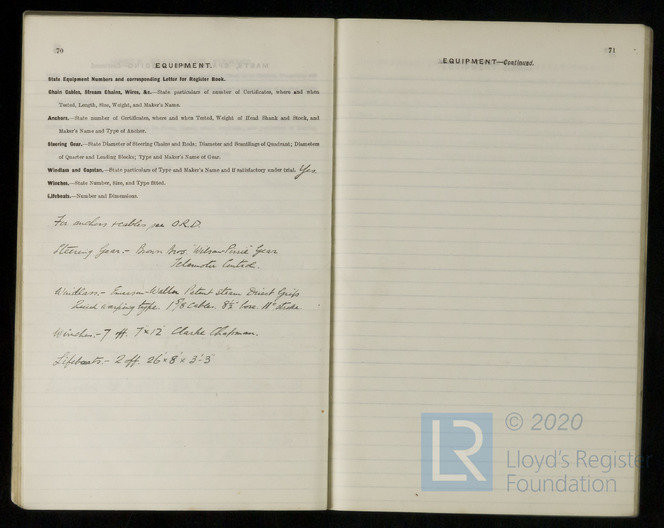 70
EQUIPMENT.
State Equipment Numbers and corresponding Letter for Register Book.
Chain Cables, Stream Chains, Wires, &c.—State particulars of number of Certificates, where and when
Tested, Length, Size, Weight, and Maker's Name.
Anchors.—State number of Certificates, where and when Tested, Weight of Head Shank and Stock, and
Maker's Name and Type of Anchor.
Steering Gear.—State Diameter of Steering Chains and Rods; Diameter and Scantlings of Quadrant; Diameters
of Quarter and Leading Blocks; Type and Maker's Name of Gear.
Windlass and Capstan.—State particulars of Type and Maker's Name and if satisfactory under trial. Yes.
Winches.—State Number, Size, and Type fitted.
Lifeboats.—Number and Dimensions.
For anchors & cables see O.R.D.
Steering Gear:- Brown Bros. Wilson Pirrie Gear
Telemotor Control.
Windlass:- Emerson Walker Patent Steam Direct Grips
warping type. 1 5/8 cables. 8½" bore 11" stroke
Winches:- 7 off. 7"x12" Clarke Chapman.
Lifeboats:- 2 off 26' x 8' x 3'-3"
71
EQUIPMENT—Continued.
LR
© 2020
Lloyd's Register
Foundation